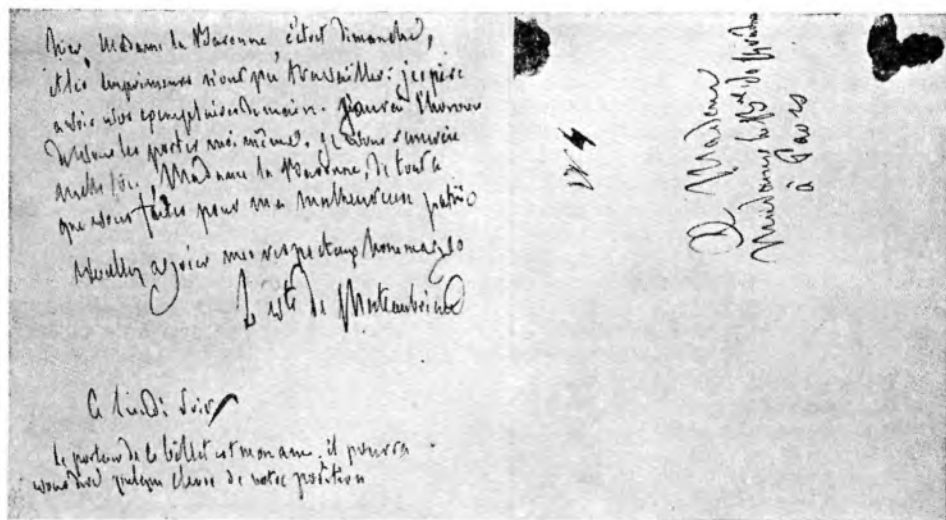 hier, Madame la Baronne, c'étoit Dimanche,
et les imprimeurs n'ont pu travailler: j'espère
avoir vos exemplaires demain. J'aurai l'honneur
de vous les porter moi même. Je vous remercie
mille fois, Madame la Baronne, de tout ce
que vous faites pour ma malheureuse patrie
Veuillez agréer mes respectueux hommages
Le vte de Chateaubriand
Ce lundi soir
Le porteur de ce billet est mon ami. il pourra
vous dire quelque chose de notre position
A Madame
Madame la Bne de
à Paris